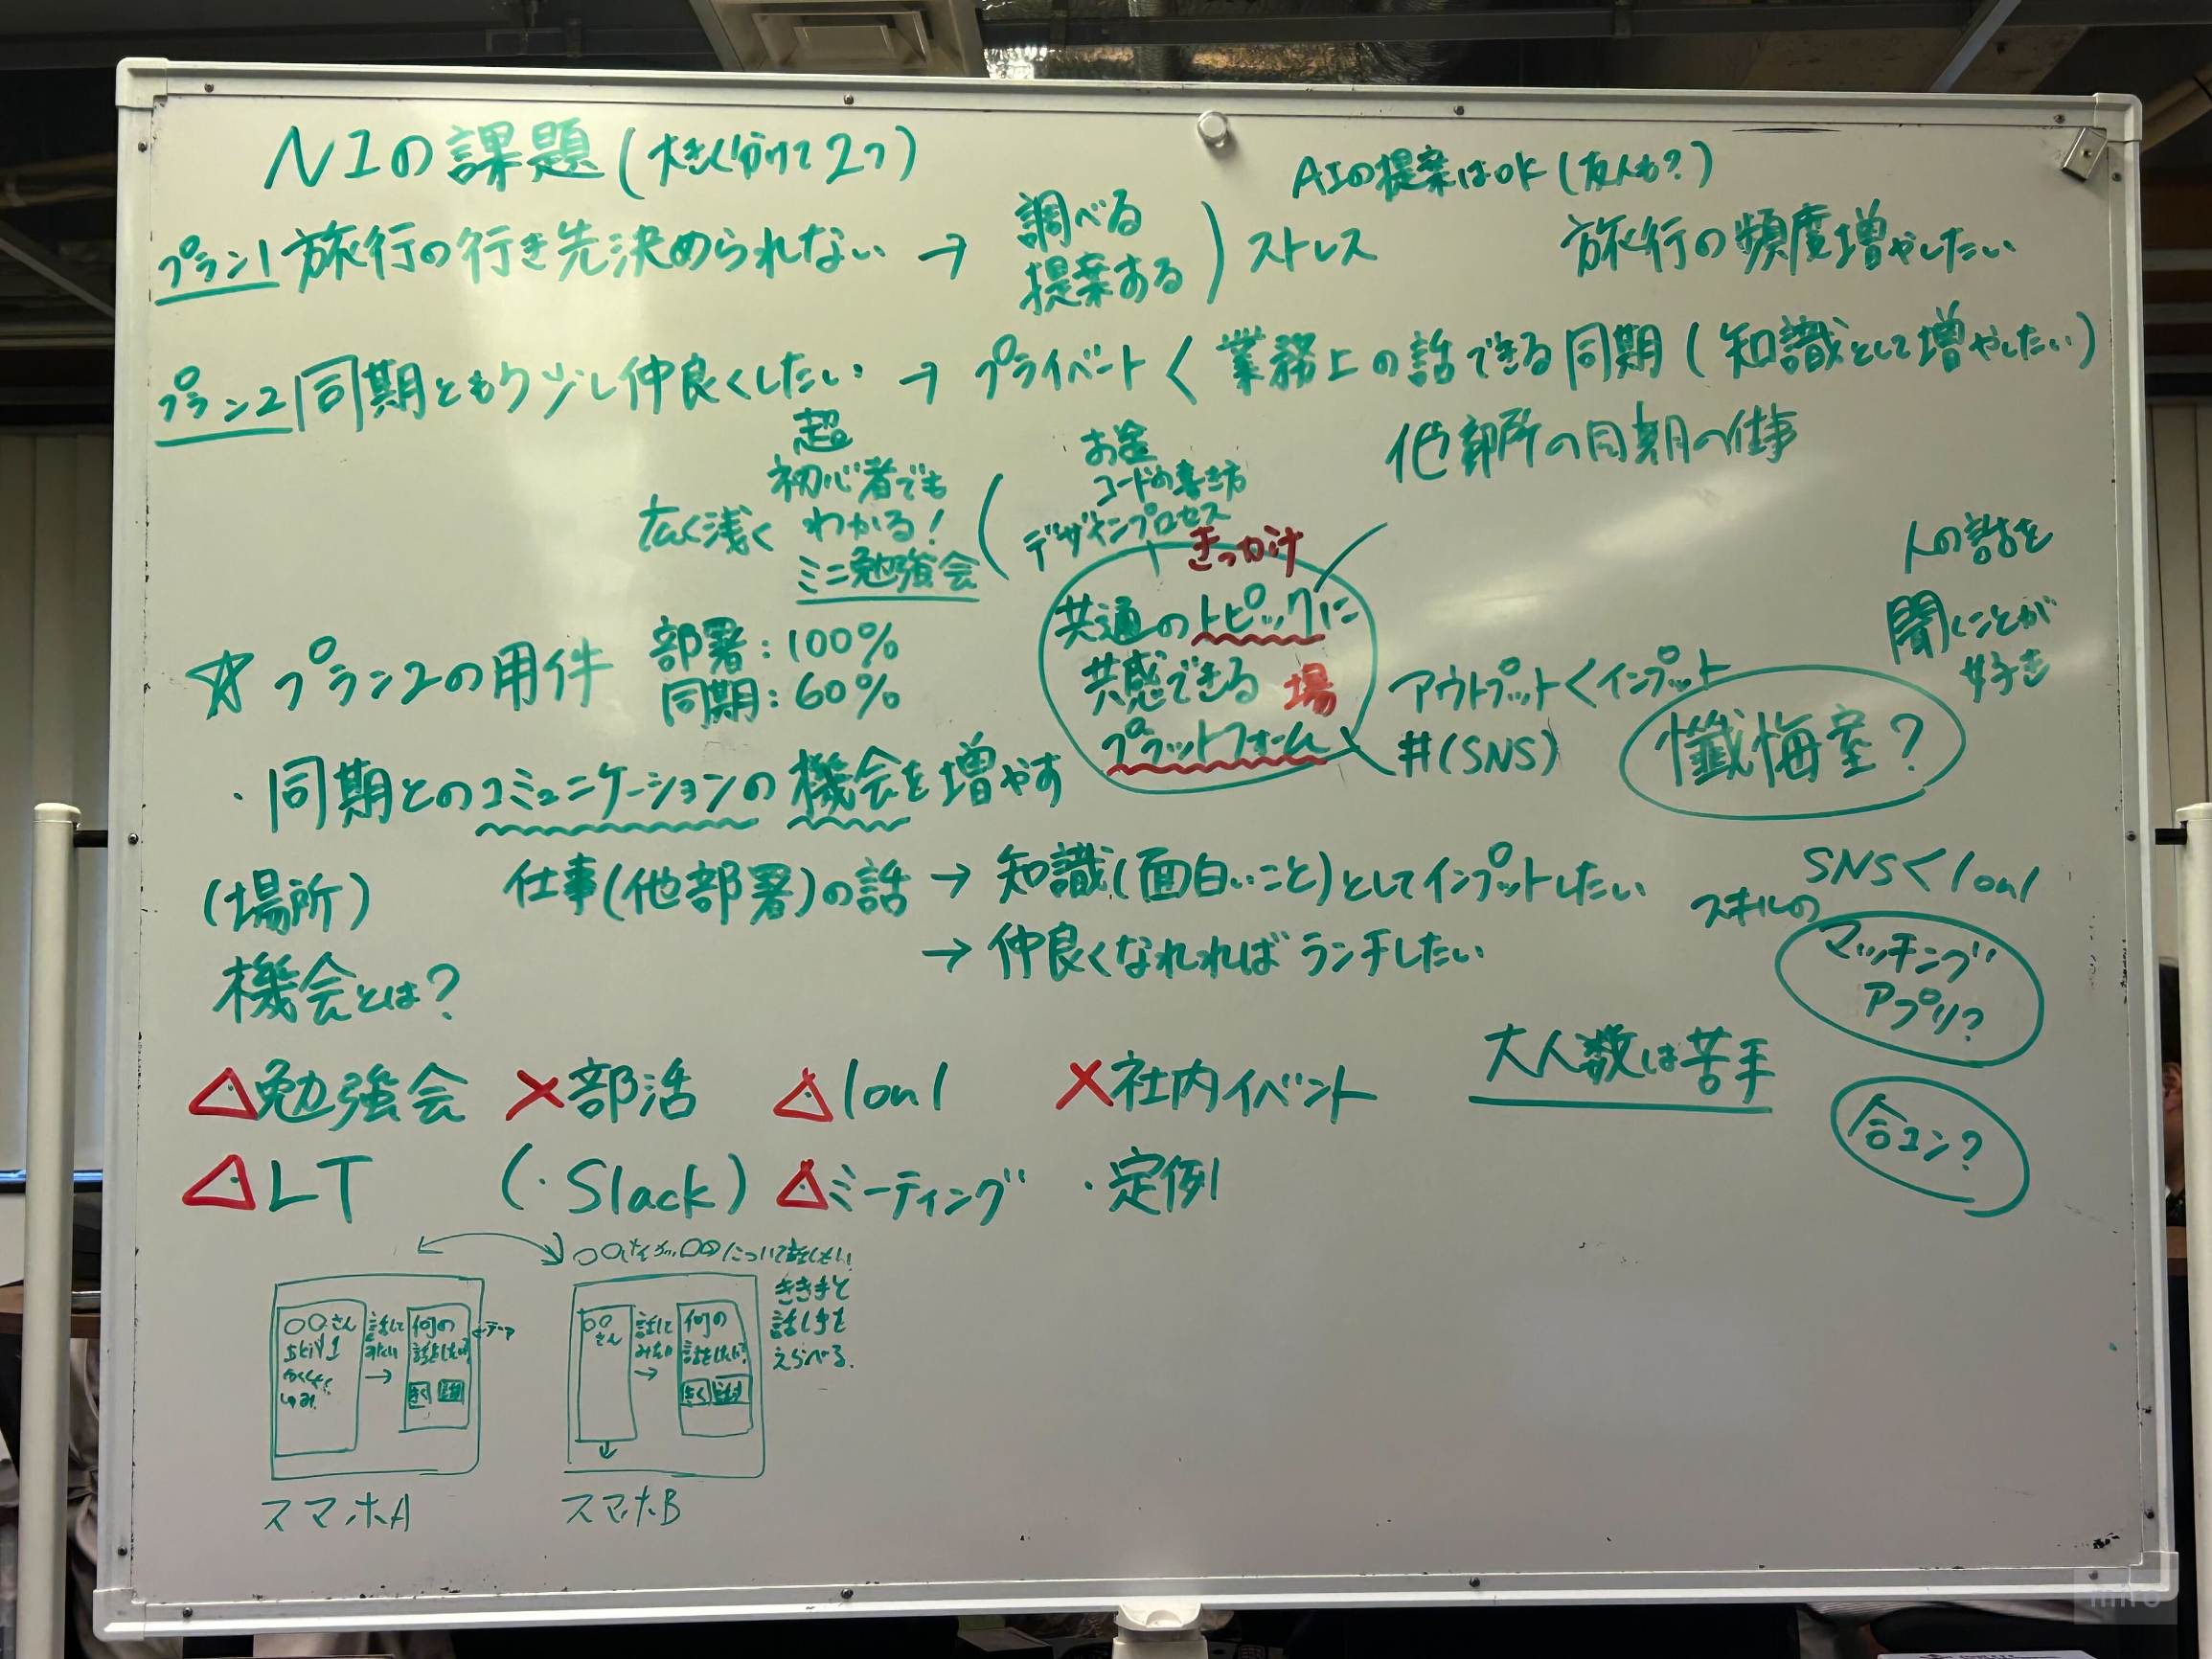 N1の課題(大きく分けて2つ)
AIの提案はOK(友人も?)
プラン1 旅行の行き先決められない → 調べる 提案する ) ストレス
旅行の頻度増やしたい
プラン2 同期ともう少し仲良くしたい → プライベート < 業務上の話できる同期(知識として増やしたい)
他部所の同期の仕事
広く浅く
超
初心者でも
わかる!
ミニ勉強会
お金
コードの書き方
デザインプロセス
きっかけ
共通のトピックに
共感できる 場
プラットフォーム
アウトプット<インプット
#(SNS)
人の話を
聞くことが
好き
懺悔室?
☆ プラン2の用件
部署:100%
同期:60%
・同期とのコミュニケーションの機会を増やす
(場所)
機会とは?
仕事(他部署)の話 → 知識(面白いこと)としてインプットしたい
→ 仲良くなれればランチしたい
SNS<1on1
スキルの
マッチング
アプリ?
大人数は苦手
合コン?
△勉強会 ×部活 △1on1 ×社内イベント
△LT (・Slack) △ミーティング ・定例
ききてと
話し手を
えらべる.
〇〇さん
skill
話して
みたい
→
何の
話をしたい?
きく
〇〇
さん
話して
みたい
→
何の
話をしたい?
きく
スマホA
スマホB
miro